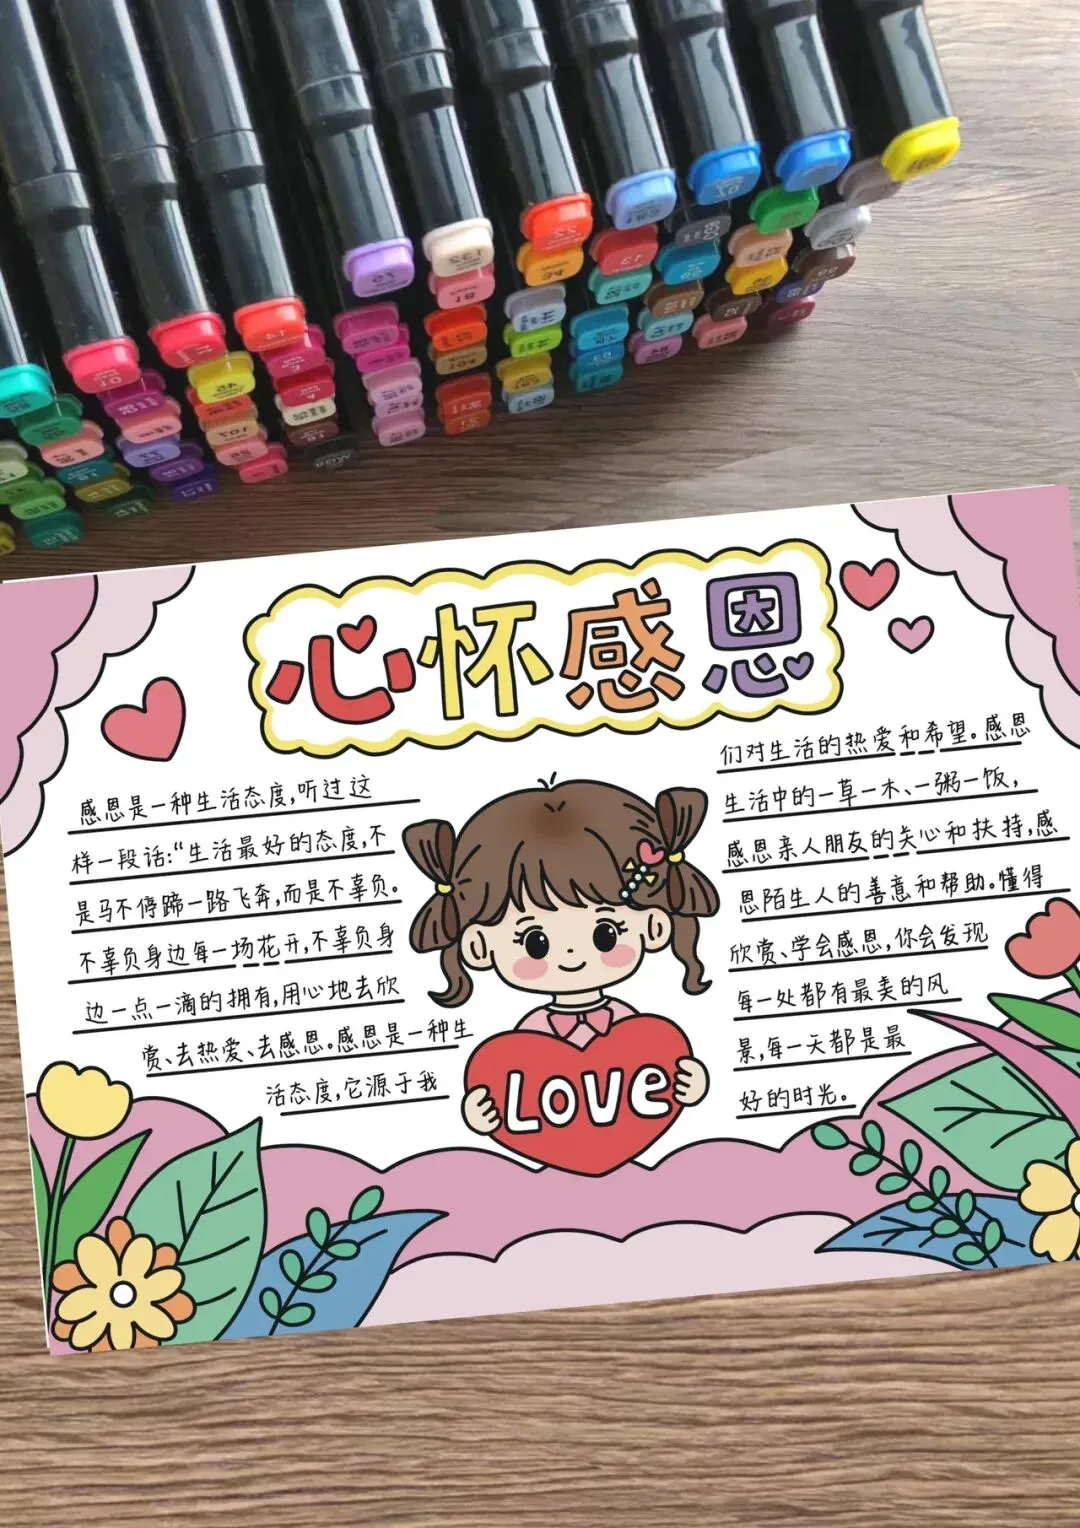 心怀感恩
感恩是一种生活态度,听过这
样一段话:“生活最好的态度,不
是马不停蹄一路飞奔,而是不辜负。
不辜负身边每一场花开,不辜负身
边一点一滴的拥有,用心地去欣
赏、去热爱、去感恩。感恩是一种生
活态度,它源于我
们对生活的热爱和希望。感恩
生活中的一草一木、一粥一饭,
感恩亲人朋友的关心和扶持,感
恩陌生人的善意和帮助。懂得
欣赏、学会感恩,你会发现
每一处都有最美的风
景,每一天都是最
好的时光。
LOVe